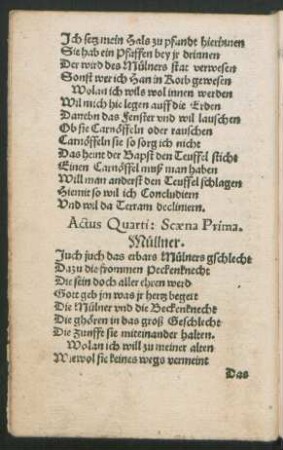 Ich setz mein Hals zu pfandt hierinnen
Sie hab ein Pfaffen bey jr drinnen
Der wird des Mülners stat verwesen
Sonst wer ich Han in Korb gewesen
Wolan ich wils wol innen werden
Wil mich hie legen auff die Erden
Daneben das Fenster vnd wil lauschen
Ob sie Carnöffeln oder rauschen
Carnöffeln sie so sorg ich nicht
Das heint der Bapst den Teuffel sticht
Einen Carnöffel muß man haben
Will man anderst den Teuffel schlagen
Hiemit so wil ich Concludiern
Vnd wil da Terram decliniern.
Actus Quarti: Scæna Prima.
Müllner.
Juch juch das erbars Mülners gschlecht
Dazu die frommen Peckenknecht
Die sein doch aller ehren werd
Gott geb jm was jr hertz begert
Die Mülner vnd die Beckenknecht
Die ghören in das groß Geschlecht
Die Zunfft sie miteinander halten.
Wolan ich will zu meiner alten
Wiewol sie keines wegs vermeint
Das